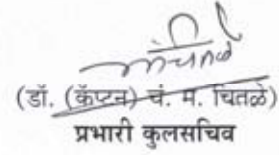 (डॉ. (कॅप्टन) चं. म. चितळे)
प्रभारी कुलसचिव